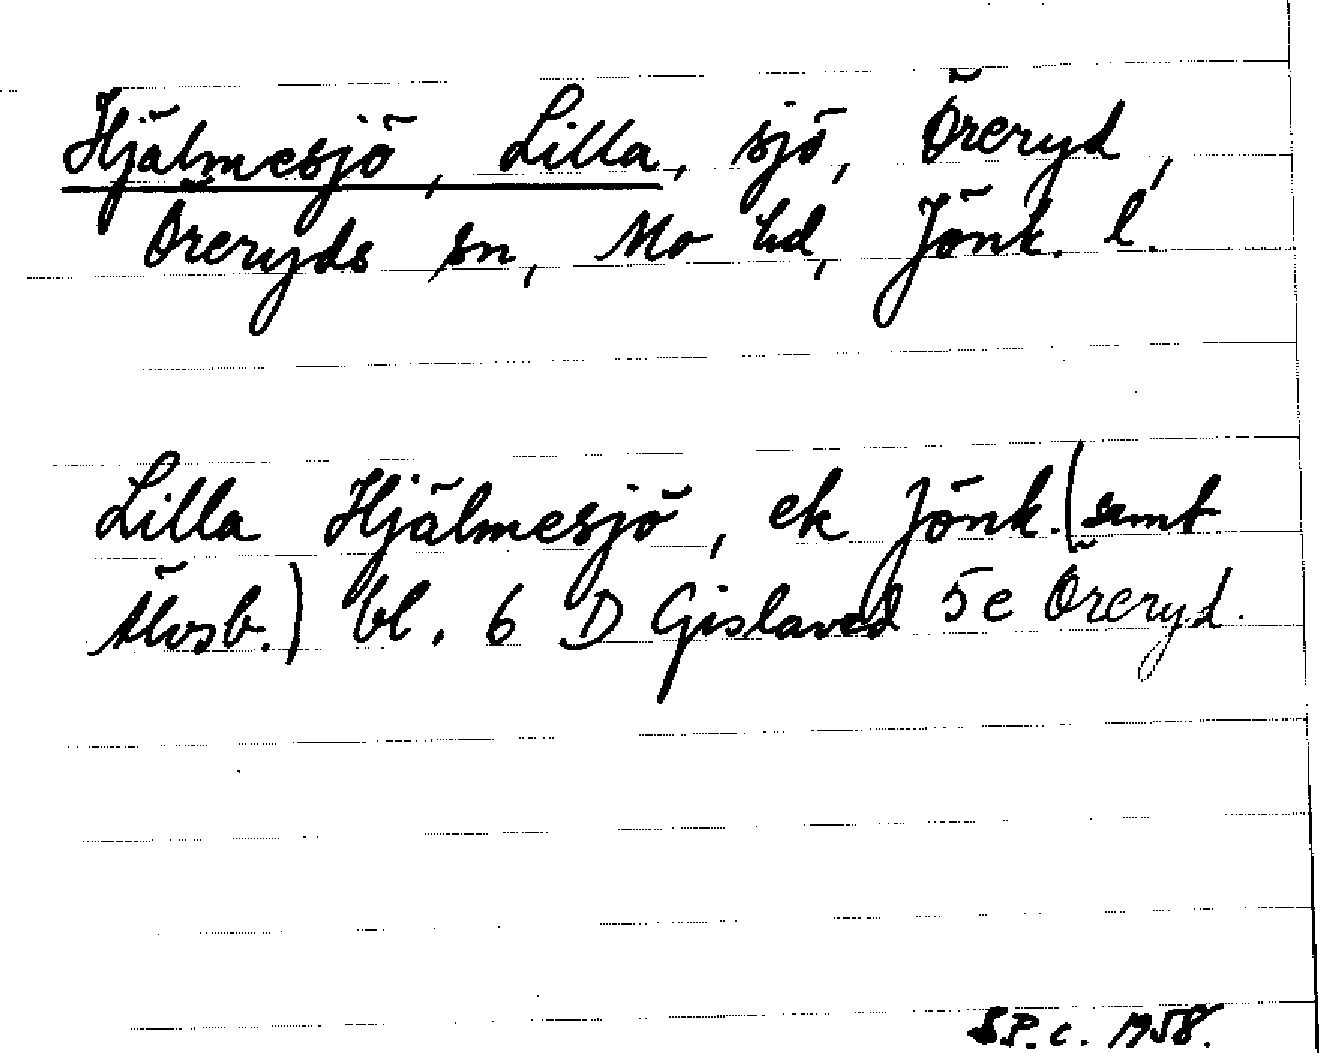 Hjälmesjö, Lilla, sjö, Öreryd,
Öreryds sn, Mo hd, Jönk. l.
Lilla Hjälmesjö, ek Jönk. (samt
Älvsb.) bl. 6 D Gislaved 5e Öreryd.
S.P. c. 1958.